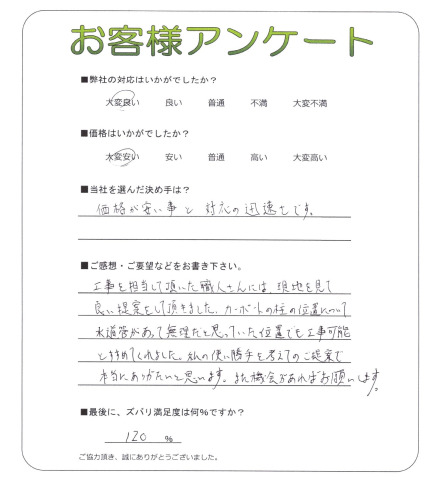 お客様アンケート
■弊社の対応はいかがでしたか?
大変良い 良い 普通 不満 大変不満
■価格はいかがでしたか?
大変安い 安い 普通 高い 大変高い
■当社を選んだ決め手は?
価格が安い事と対応の迅速さです。
■ご感想・ご要望などをお書き下さい。
工事を担当して頂いた職人さんには、現地を見て
良い提案をして頂きました。カーポートの柱の位置について
水道管があって無理だと思っていた位置でも工事可能
とすすめてくれました。私の使い勝手を考えてのご提案で
本当にありがたいと思います。また機会があればお願いします。
■最後に、ズバリ満足度は何%ですか?
120 %
ご協力頂き、誠にありがとうございました。